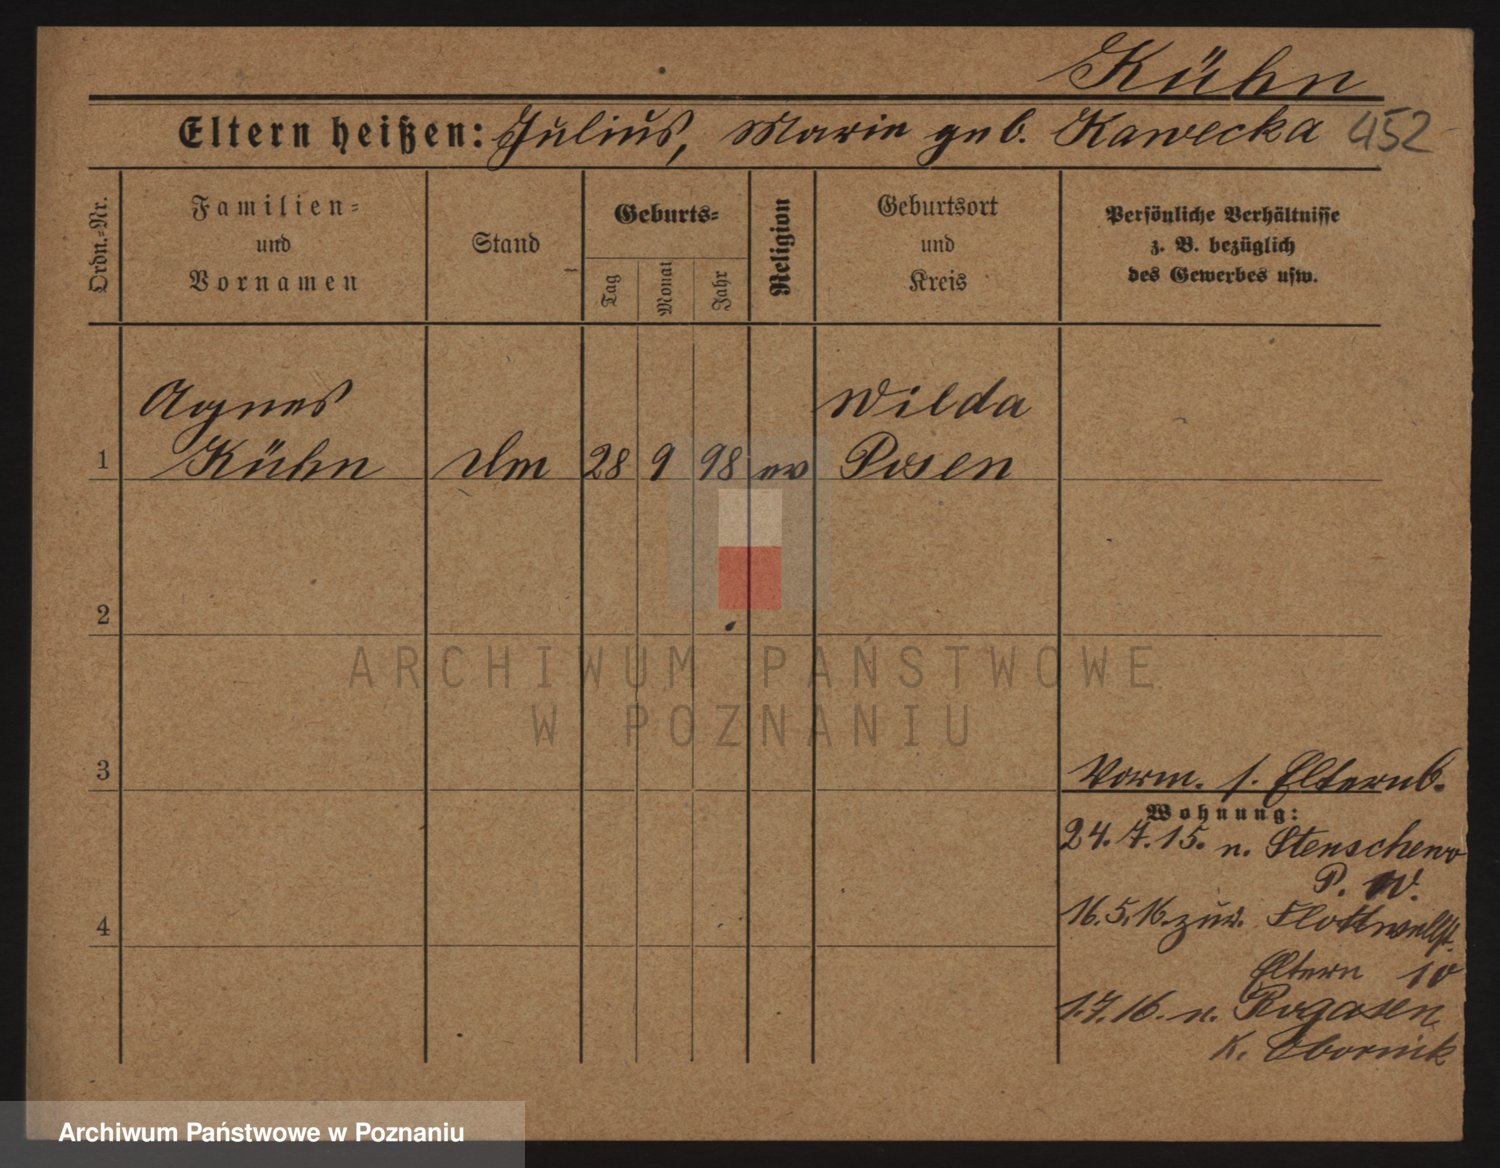 Kühn
Eltern heißen: Julius, Marie geb. Kawecka 452
Ordn.-Nr.
Familien-
und
Vornamen
Stand
Geburts-
Tag
Monat
Jahr
Religion
Geburtsort
und
Kreis
Persönliche Verhältnisse
z. B. bezüglich
des Gewerbes usw.
Agnes Wilda
1 Kühn 28 9 98 ev Posen
2
3
Vorm. s. Elternb.
Wohnung:
24.7.15. n. Stenschewo
P. W.
4
16.5.16. zur. Flottwellst.
Eltern 10
1.7.16. n. Rogasen
K. Obornik
ARCHIWUM PAŃSTWOWE
W POZNANIU
Archiwum Państwowe w Poznaniu